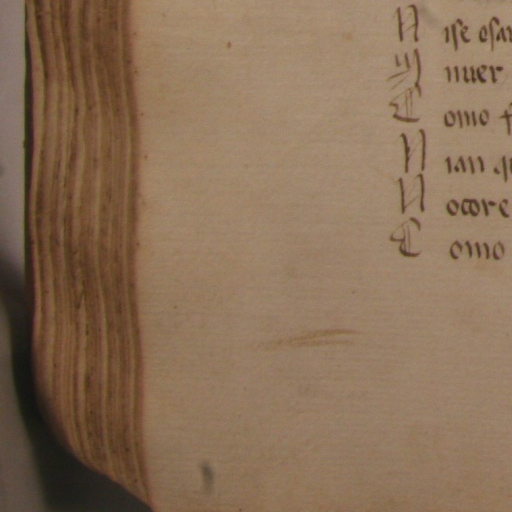 N ise osa
M nuer
C omo f
N ian q
N ocore
C omo